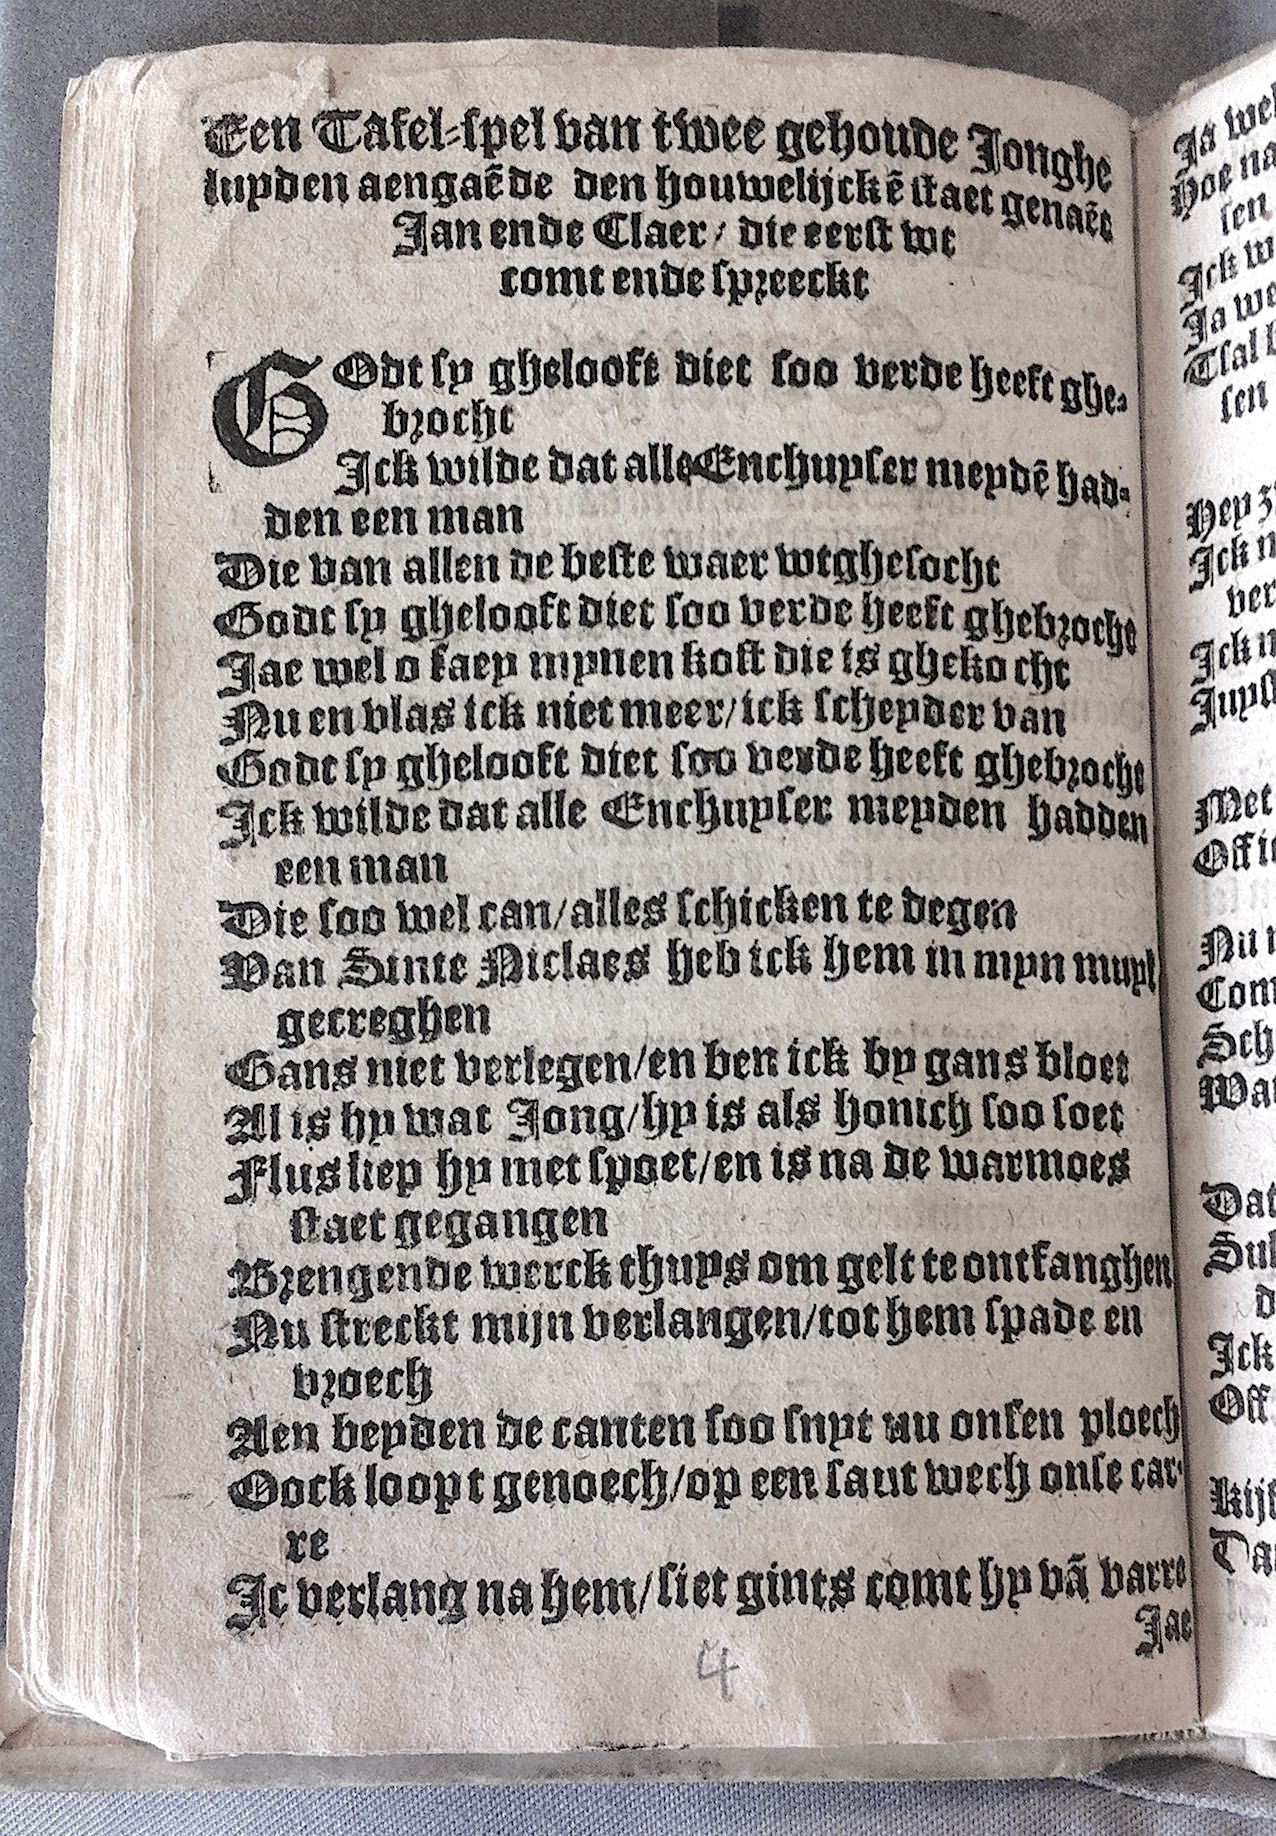 Een Tafel-spel van twee gehoude Jonghe
luyden aengaẽde den houwelijckẽ staet genaẽt
Jan ende Claer / die eerst wt
comt ende spreeckt
GOdt sy ghelooft diet soo verde heeft ghe-
brocht
Ick wilde dat alle Enchuyser meydẽ had-
den een man
Die van allen de beste waer wtghesocht
Godt sy ghelooft diet soo verde heeft ghebrocht
Jae wel o kaey mynen kost die is ghekocht
Nu en vlas ick niet meer/ick scheyder van
Godt sy ghelooft diet soo verde heeft ghebrocht
Ick wilde dat alle Enchuyser meyden hadden
een man
Die soo wel can/alles schicken te degen
Van Sinte Niclaes heb ick hem in myn muyl
gecreghen
Gans niet verlegen/en ben ick by gans bloet
Al is hy wat Jong/hy is als honich soo soet
Flus liep hy met spoet/en is na de warmoes
staet gegangen
Brengende werck thuys om gelt te ontfanghen
Nu streckt mijn verlangen/tot hem spade en
vroech
Aen beyden de canten soo snyt nu onsen ploech
Oock loopt genoech/op een sant wech onse car-
re
Ic verlang na hem/siet gints comt hy vã varre
Jae
4
Ja wel
Hoe na
sen
Ick w
Ja we
Tsal
sen
Hey
Ick n
ver
Ick n
Juyst
Met
Off
Nu
Com
Sch
Wat
Dat
Sul
d
Ick
Off
Kijk
Dat